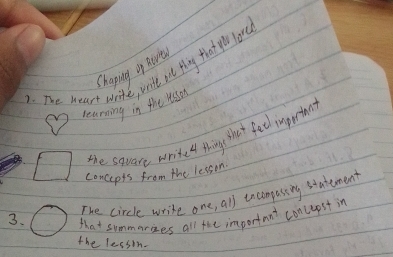 Shaping up Review
1. The heart write, write one thing that you loved
learning in the lesson
the square write 4 things that feel important
concepts from the lesson.
3. The circle write one, all encompassing statement
that summarazes all the important concepst in
the lesson.